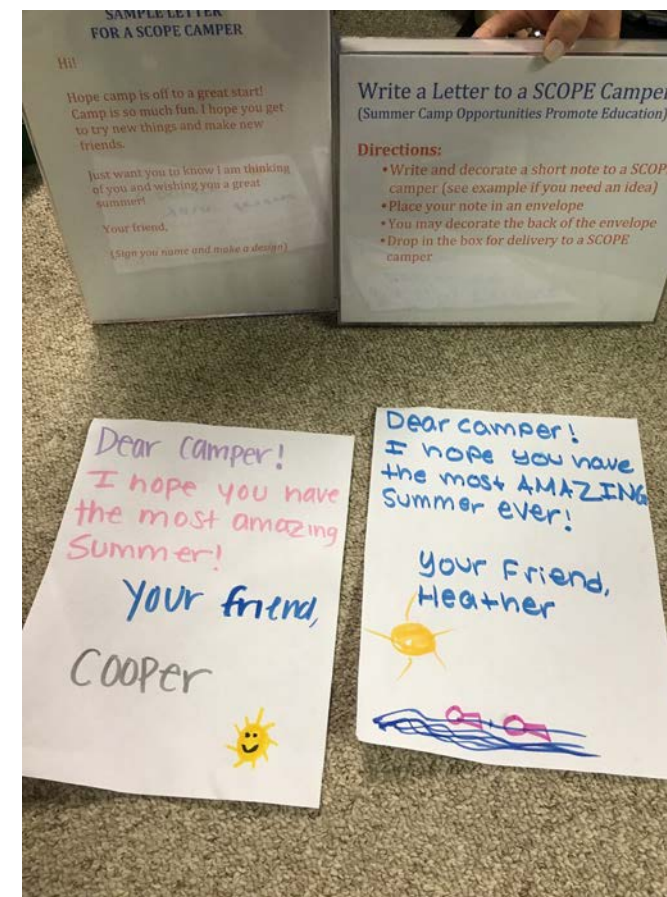 SAMPLE LETTER
FOR A SCOPE CAMPER
Hi!
Hope camp is off to a great start!
Camp is so much fun. I hope you get
to try new things and make new
friends.
Just want you to know I am thinking
of you and wishing you a great
summer!
Your friend,
(Sign you name and make a design)
Write a Letter to a SCOPE Camper
(Summer Camp Opportunities Promote Education)
Directions:
•Write and decorate a short note to a SCOPE
camper (see example if you need an idea)
•Place your note in an envelope
•You may decorate the back of the envelope
•Drop in the box for delivery to a SCOPE
camper
Dear Camper!
I hope you have
the most amazing
Summer!
Your friend,
Cooper
Dear camper!
I hope you have
the most AMAZING
Summer ever!
your Friend,
Heather